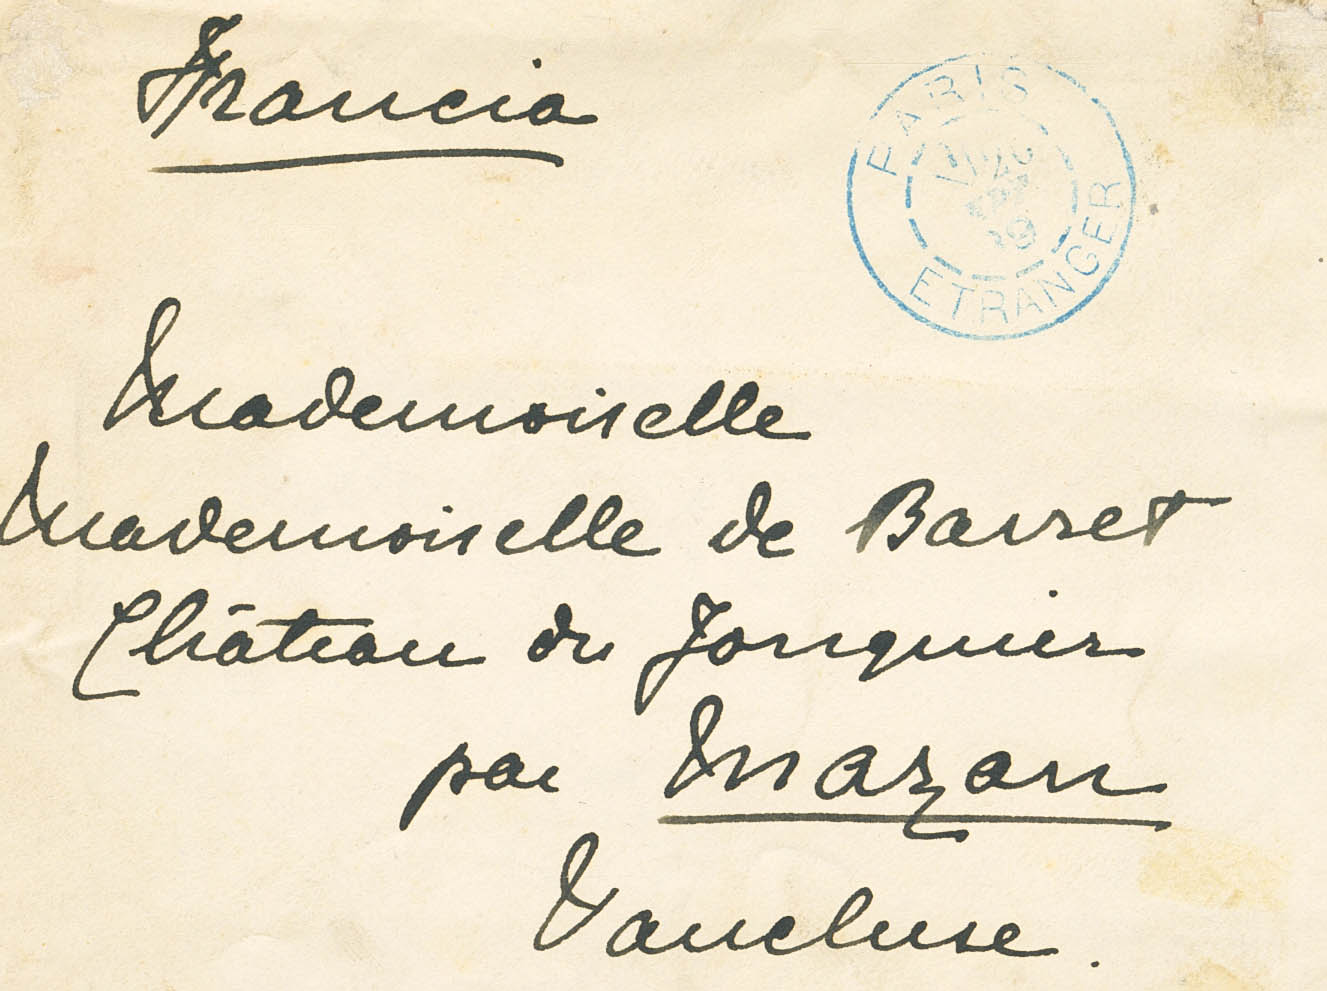 Francia
PARIS
ETRANGER
Mademoiselle
Mademoiselle de Barret
Château du Jonquier
par Mazan
Vaucluse.